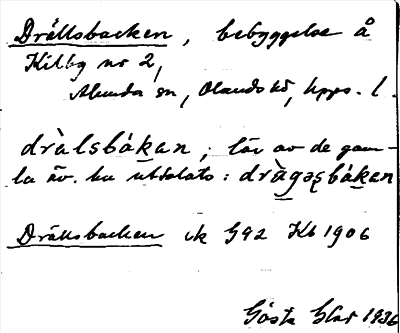 Drällsbacken, bebyggelse å
Kilby nr 2,
Alunda sn, Olands hd, Upps. l.
dràlsbákan; lär av de gam-
la äv. ha uttalats: dràgǝsbákan
Drällsbacken ek G92 Kb 1906
Gösta 1936